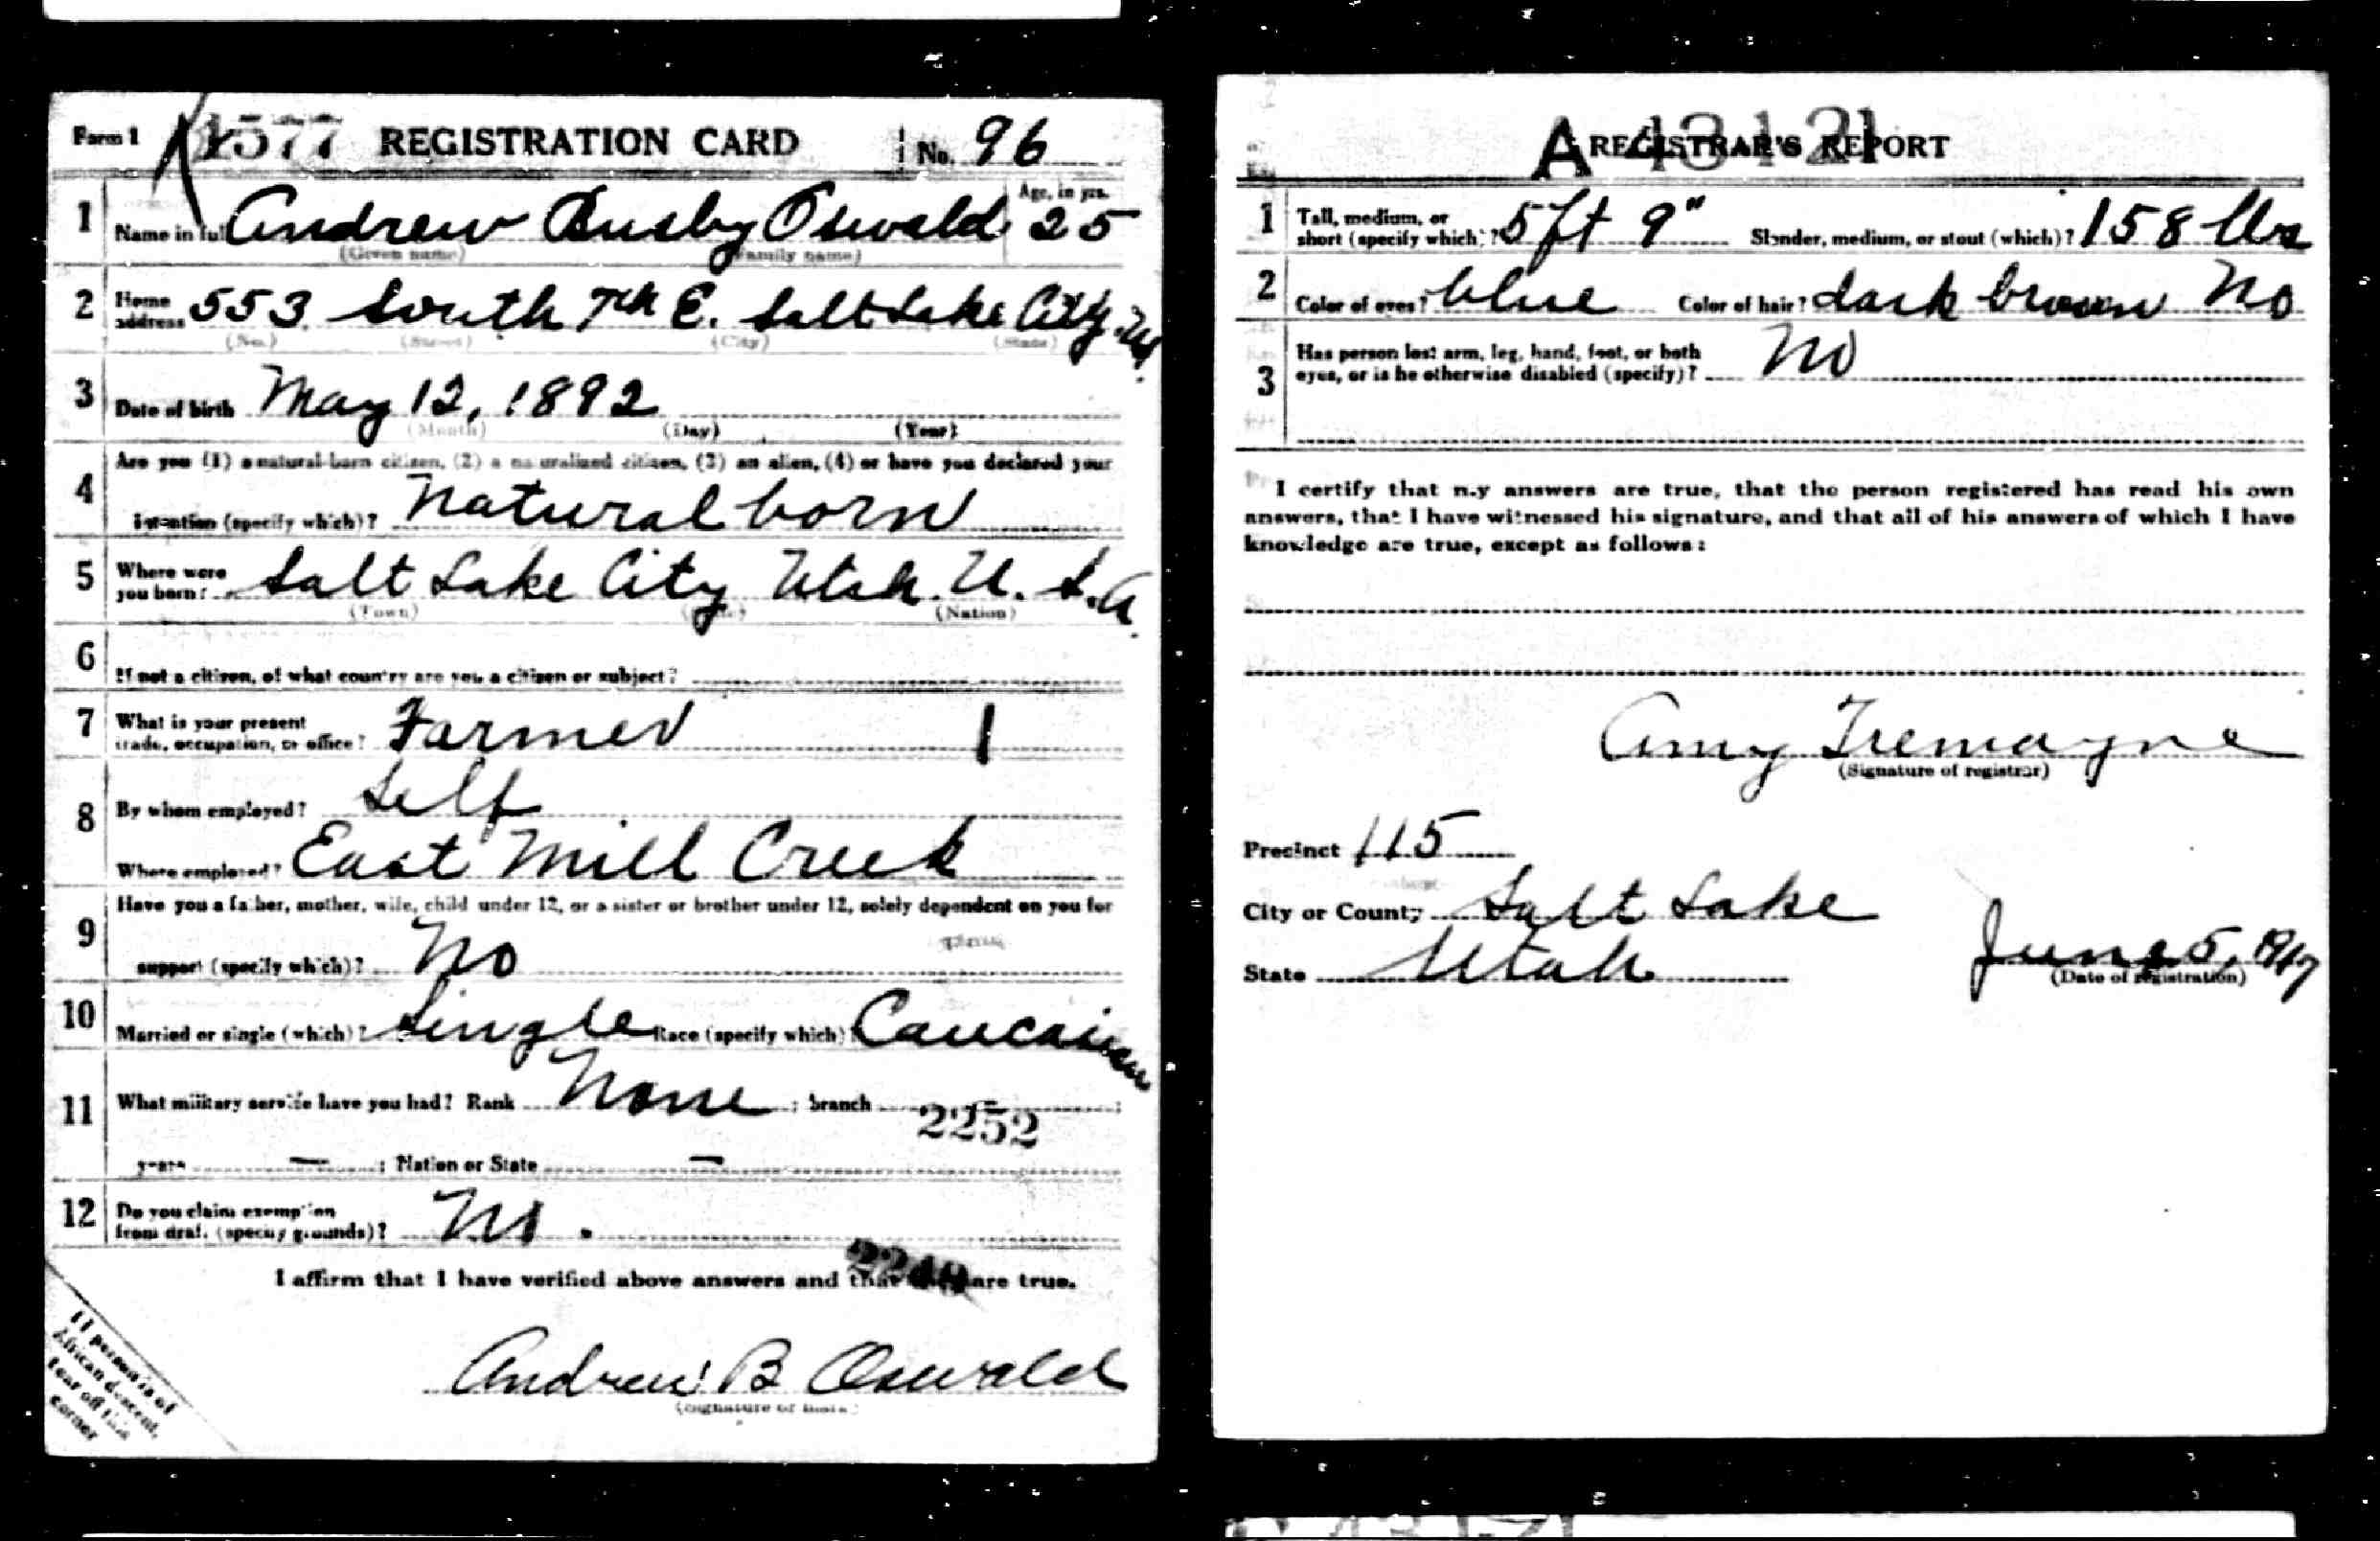 Form 1 1577 REGISTRATION CARD No. 96
1 Name in full Andrew Busby Oswald Age, in yrs. 25
(Given name) (Family name)
2 Home address 553 South 7th E. Salt Lake City, Ut.
(No.) (Street) (City) (State)
3 Date of birth May 12, 1892
(Month) (Day) (Year)
4 Are you (1) a natural-born citizen, (2) a naturalized citizen, (3) an alien, (4) or have you declared your
intention (specify which)? Natural born
5 Where were you born? Salt Lake City Utah. U. S. A.
(Town) (State) (Nation)
6 If not a citizen, of what country are you a citizen or subject?
7 What is your present trade, occupation, or office? Farmer 1
8 By whom employed? Self
Where employed? East Mill Creek
9 Have you a father, mother, wife, child under 12, or a sister or brother under 12, solely dependent on you for
support (specify which)? No
10 Married or single (which)? Single Race (specify which)? Caucasian
11 What military service have you had? Rank None ; branch ;
2252
years — ; Nation or State —
12 Do you claim exemption
from draft (specify grounds)? No.
2249
I affirm that I have verified above answers and that they are true.
Andrew B Oswald
(Signature or mark)
If person is of
African descent,
tear off this
corner
A 43121
REGISTRAR'S REPORT
1 Tall, medium, or
short (specify which)? 5 ft 9" Slender, medium, or stout (which)? 158 lbs
2 Color of eyes? blue Color of hair? dark brown No
3 Has person lost arm, leg, hand, foot, or both
eyes, or is he otherwise disabled (specify)? No
I certify that my answers are true, that the person registered has read his own
answers, that I have witnessed his signature, and that all of his answers of which I have
knowledge are true, except as follows:
Amy Tremayne
(Signature of registrar)
Precinct 115
City or County Salt Lake
State Utah June 5, 1917
(Date of registration)